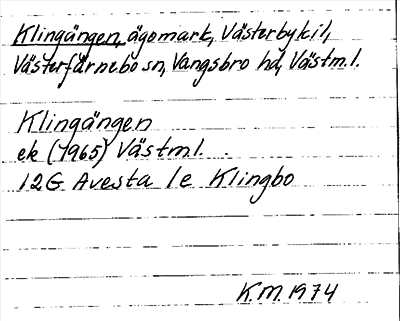 Klingängen, ägomark, Västerbykil,
Västerfärnebo sn, Vangsbro hd, Västm.l.
Klingängen
ek (1965) Västml.
12G Avesta 1e Klingbo
K.M. 1974